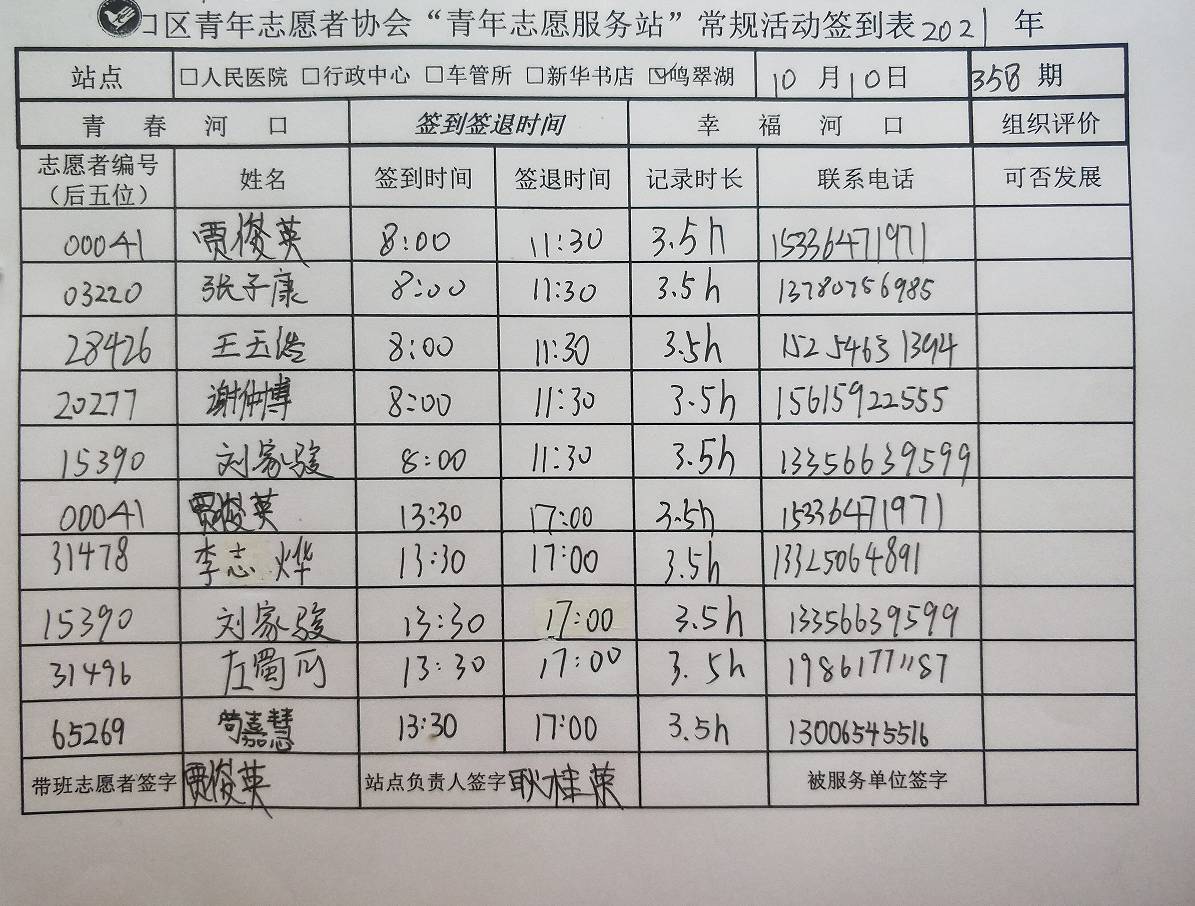 口区青年志愿者协会“青年志愿服务站”常规活动签到表2021年
站点 □人民医院 □行政中心 □车管所 □新华书店 ☑鸣翠湖 10月10日 358期
青春河口 签到签退时间 幸福河口 组织评价
志愿者编号（后五位） 姓名 签到时间 签退时间 记录时长 联系电话 可否发展
00041 贾俊英 8:00 11:30 3.5h 15336471971
03220 张子康 8:00 11:30 3.5h 13780756985
28426 王玉浩 8:00 11:30 3.5h 15254631394
20277 谢仲博 8:00 11:30 3.5h 15615922555
15390 刘家骏 8:00 11:30 3.5h 13356639599
00041 贾俊英 13:30 17:00 3.5h 15336471971
31478 李志烨 13:30 17:00 3.5h 13325064891
15390 刘家骏 13:30 17:00 3.5h 13356639599
31496 左蜀 13:30 17:00 3.5h 19861771187
65269 苟嘉慧 13:30 17:00 3.5h 13006545516
带班志愿者签字 贾俊英 站点负责人签字 耿桂荣 被服务单位签字